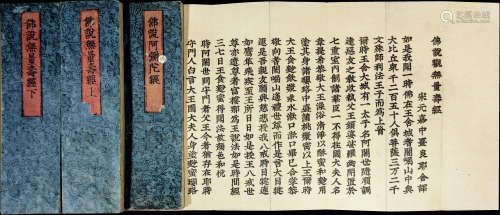 佛說觀無量壽經
宋元嘉中畺良耶舍譯
如是我聞一時佛在王舍城耆闍崛山中與
大比丘眾千二百五十人俱菩薩三萬二千
文殊師利法王子而為上首
爾時王舍大城有一太子名阿闍世隨順調
達惡友之教收執父王頻婆娑羅幽閉置於
七重室內制諸群臣一不得往國大夫人名
韋提希恭敬大王澡浴清淨以酥蜜和麨用
塗其身諸瓔珞中盛蒲萄漿密以上王爾時
大王食麨飲漿求水漱口漱口畢已合掌恭
敬向耆闍崛山遙禮世尊而作是言大目犍
連是吾親友願興慈悲授我八戒時目犍連
如鷹隼飛疾至王所日日如是授王八戒世
尊亦遣尊者富樓那為王說法如是時間經
三七日王食麨蜜得聞法故顏色和悅
時阿闍世問守門者父王今者猶存在耶時
守門人白言大王國大夫人身塗麨蜜瓔珞
佛說阿彌陀經
佛說無量壽經上
佛說無量壽經下